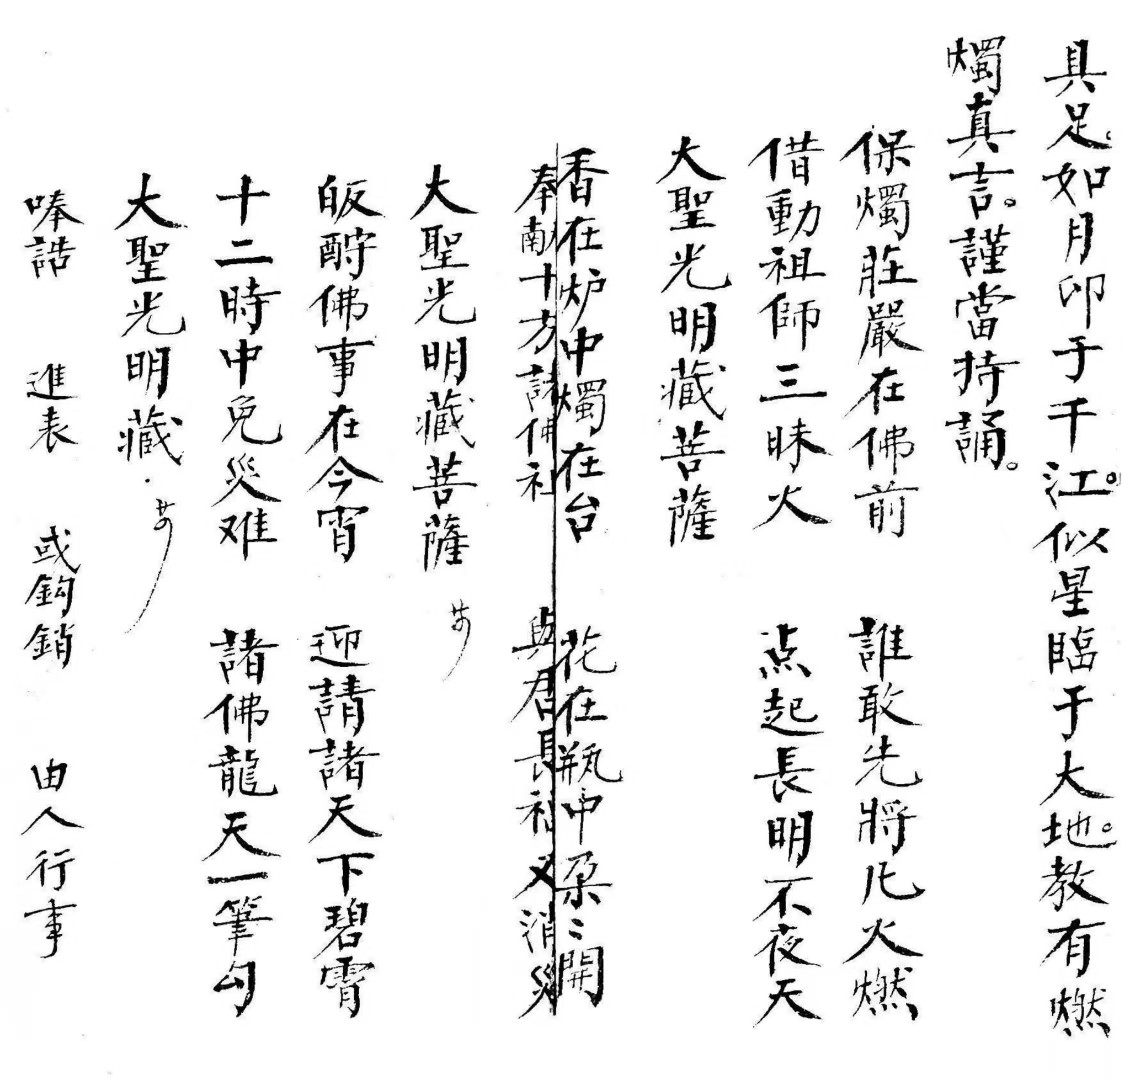 具足。如月印于千江。似星臨于大地。教有燃
燭真言。謹當持誦。
保燭莊嚴在佛前　誰敢先將凡火燃
借動祖師三昧火　点起長明不夜天
大聖光明藏菩薩
香在炉中燭在台　花在瓶中朶〻開
奉献十方諸佛祖　與君長福又消災
大聖光明藏菩薩
皈酧佛事在今宵　迎請諸天下碧霄
十二時中免災难　諸佛龍天一筆勾
大聖光明藏
唪誥　進表　或鈎銷　由人行事